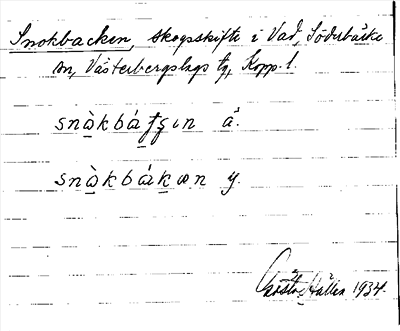 Snokbacken, skogsskifte i Vad, Söderbärke
sn, Västerbergslags tg, Kopp. l.
snòkbátʂɩn å.
snòkbákæn y.
Gösta Hallén 1934